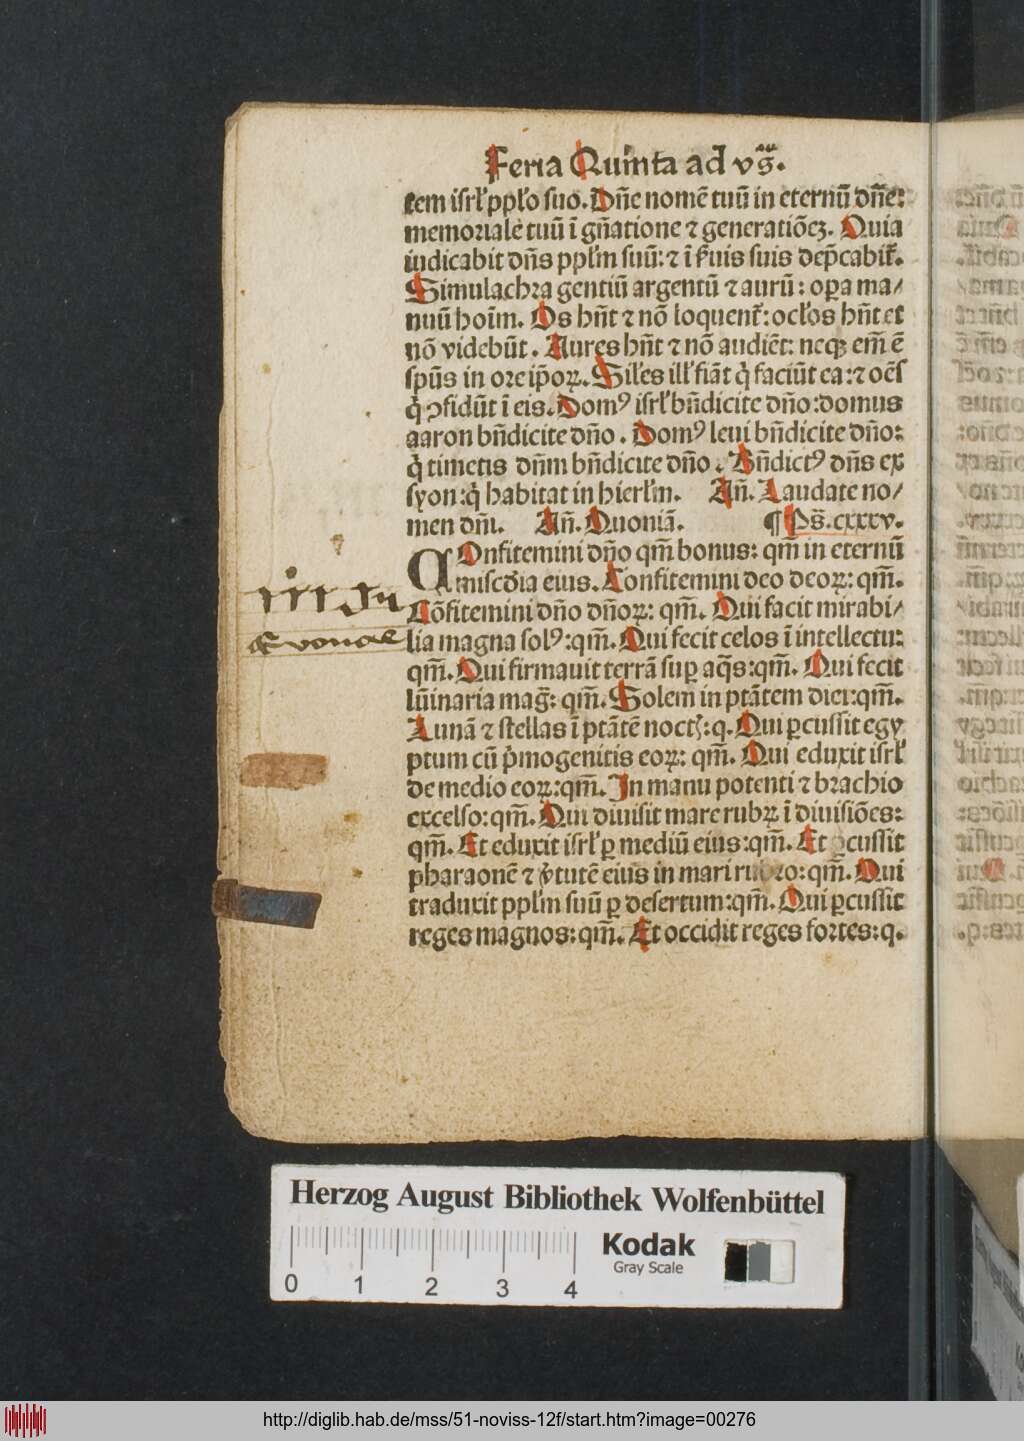 Feria Quinta ad vs̃.
tem isrl̕ ppl̕o suo. Dñe nomẽ tuũ in eternũ dñe:
memoriale tuũ ĩ gñatione ⁊ generatiõeʒ. Quia
iudicabit dñs ppl̕m suũ: ⁊ ĩ ẜuis suis dep̃cabit̃.
Simulachra gentiũ argentũ ⁊ aurũ: oꝑa ma/
nuũ hoĩm. Os hñt ⁊ nõ loquent̃: ocl̕os hñt et
nõ videbũt. Aures hñt ⁊ nõ audiẽt: neqꝫ em̃ ẽ
spũs in ore ip̃oꝝ. Siles ill̕ fiãt q̇ faciũt ea: ⁊ oẽs
q̇ ꝯfidũt ĩ eis. Domꝰ isrl̕ bñdicite dño: domus
aaron bñdicite dño. Domꝰ leui bñdicite dño:
q̇ timetis dñm bñdicite dño. Bñdictꝰ dñs ex
syon: q̇ habitat in hierl̕m. Añ. Laudate no/
men dñi. Añ. Quoniã. ¶ Ps̃. cxxxv.
COnfitemini dño qm̃ bonus: qm̃ in eternũ
misc̃dia eius. Confitemini deo deoꝝ: qm̃.
Cõfitemini dño dñoꝝ: qm̃. Qui facit mirabi/
lia magna solꝰ: qm̃. Qui fecit celos ĩ intellectu:
qm̃. Qui firmauit terrã suꝑ aq̃s: qm̃. Qui fecit
lũinaria mag̃: qm̃. Solem in ptãtem diei: qm̃.
Lunã ⁊ stellas ĩ ptãtẽ noctꝭ: q. Qui ꝑcussit egy
ptum cũ p̃mogenitis eoꝝ: qm̃. Qui eduxit isrl̕
de medio eoꝝ: qm̃. In manu potenti ⁊ brachio
excelso: qm̃. Qui diuisit mare rubꝝ ĩ diuisiões:
qm̃. Et eduxit isrl̕ ꝑ mediũ eius: qm̃. Et ꝑcussit
pharaonẽ ⁊ v̓tutẽ eius in mari rubro: qm̃. Qui
traduxit ppl̕m suũ ꝑ desertum: qm̃. Qui ꝑcussit
reges magnos: qm̃. Et occidit reges fortes: q.
Herzog August Bibliothek Wolfenbüttel
0 1 2 3 4
Kodak
Gray Scale
http://diglib.hab.de/mss/51-noviss-12f/start.htm?image=00276